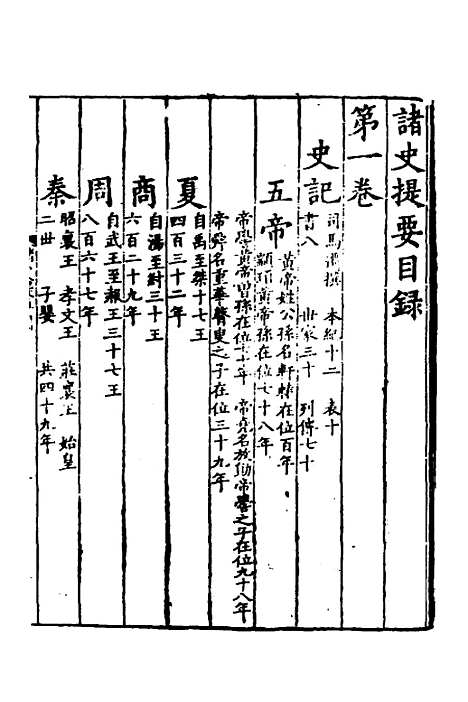 諸史提要目錄
第一卷
史記
司馬遷撰 本紀十二 表十
書八 世家三十 列傳七十
五帝
黃帝姓公孫名軒轅在位百年
顓頊黃帝孫在位七十八年
帝嚳黃帝曾孫在位七十年 帝堯名放勛帝嚳之子在位九十八年
帝舜名重華瞽叟之子在位三十九年
夏
自禹至桀十七王
四百三十二年
商
自湯至紂三十王
六百二十九年
周
自武王至赧王三十七王
八百六十七年
秦
昭襄王 孝文王 莊襄王 始皇
二世 子嬰 共四十九年